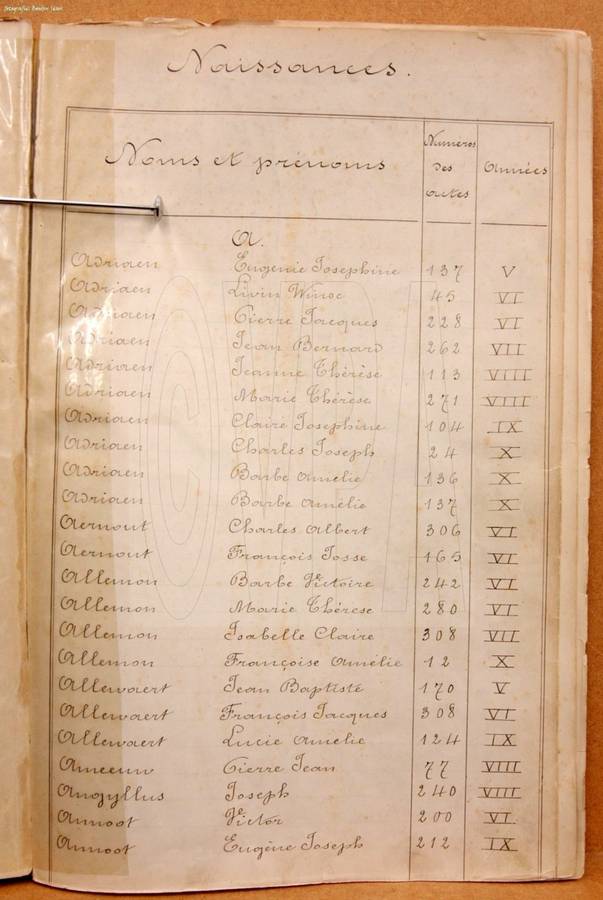 Naissances.
Noms et prénoms
Numéros des actes
Années
A.
Adriaen Eugenie Josephine 137 V
Adriaen Livin Winoc 45 VI
Adriaen Pierre Jacques 228 VI
Adriaen Jean Bernard 262 VII
Adriaen Jeanne Thérèse 113 VIII
Adriaen Marie Thérèse 271 VIII
Adriaen Claire Josephine 104 IX
Adriaen Charles Joseph 24 X
Adriaen Barbe Amélie 136 X
Adriaen Barbe Amélie 137 X
Aernout Charles Albert 306 VI
Aernout François Josse 165 VI
Allemon Barbe Victoire 242 VI
Allemon Marie Thérese 280 VI
Allemon Isabelle Claire 308 VII
Allemon Françoise Amélie 12 X
Allewaert Jean Baptiste 170 V
Allewaert François Jacques 308 VI
Allewaert Lucie Amélie 124 IX
Ameeuw Pierre Jean 77 VIII
Joseph 240 VIII
Annoot Victor 200 VI.
Annoot Eugène Joseph 212 IX